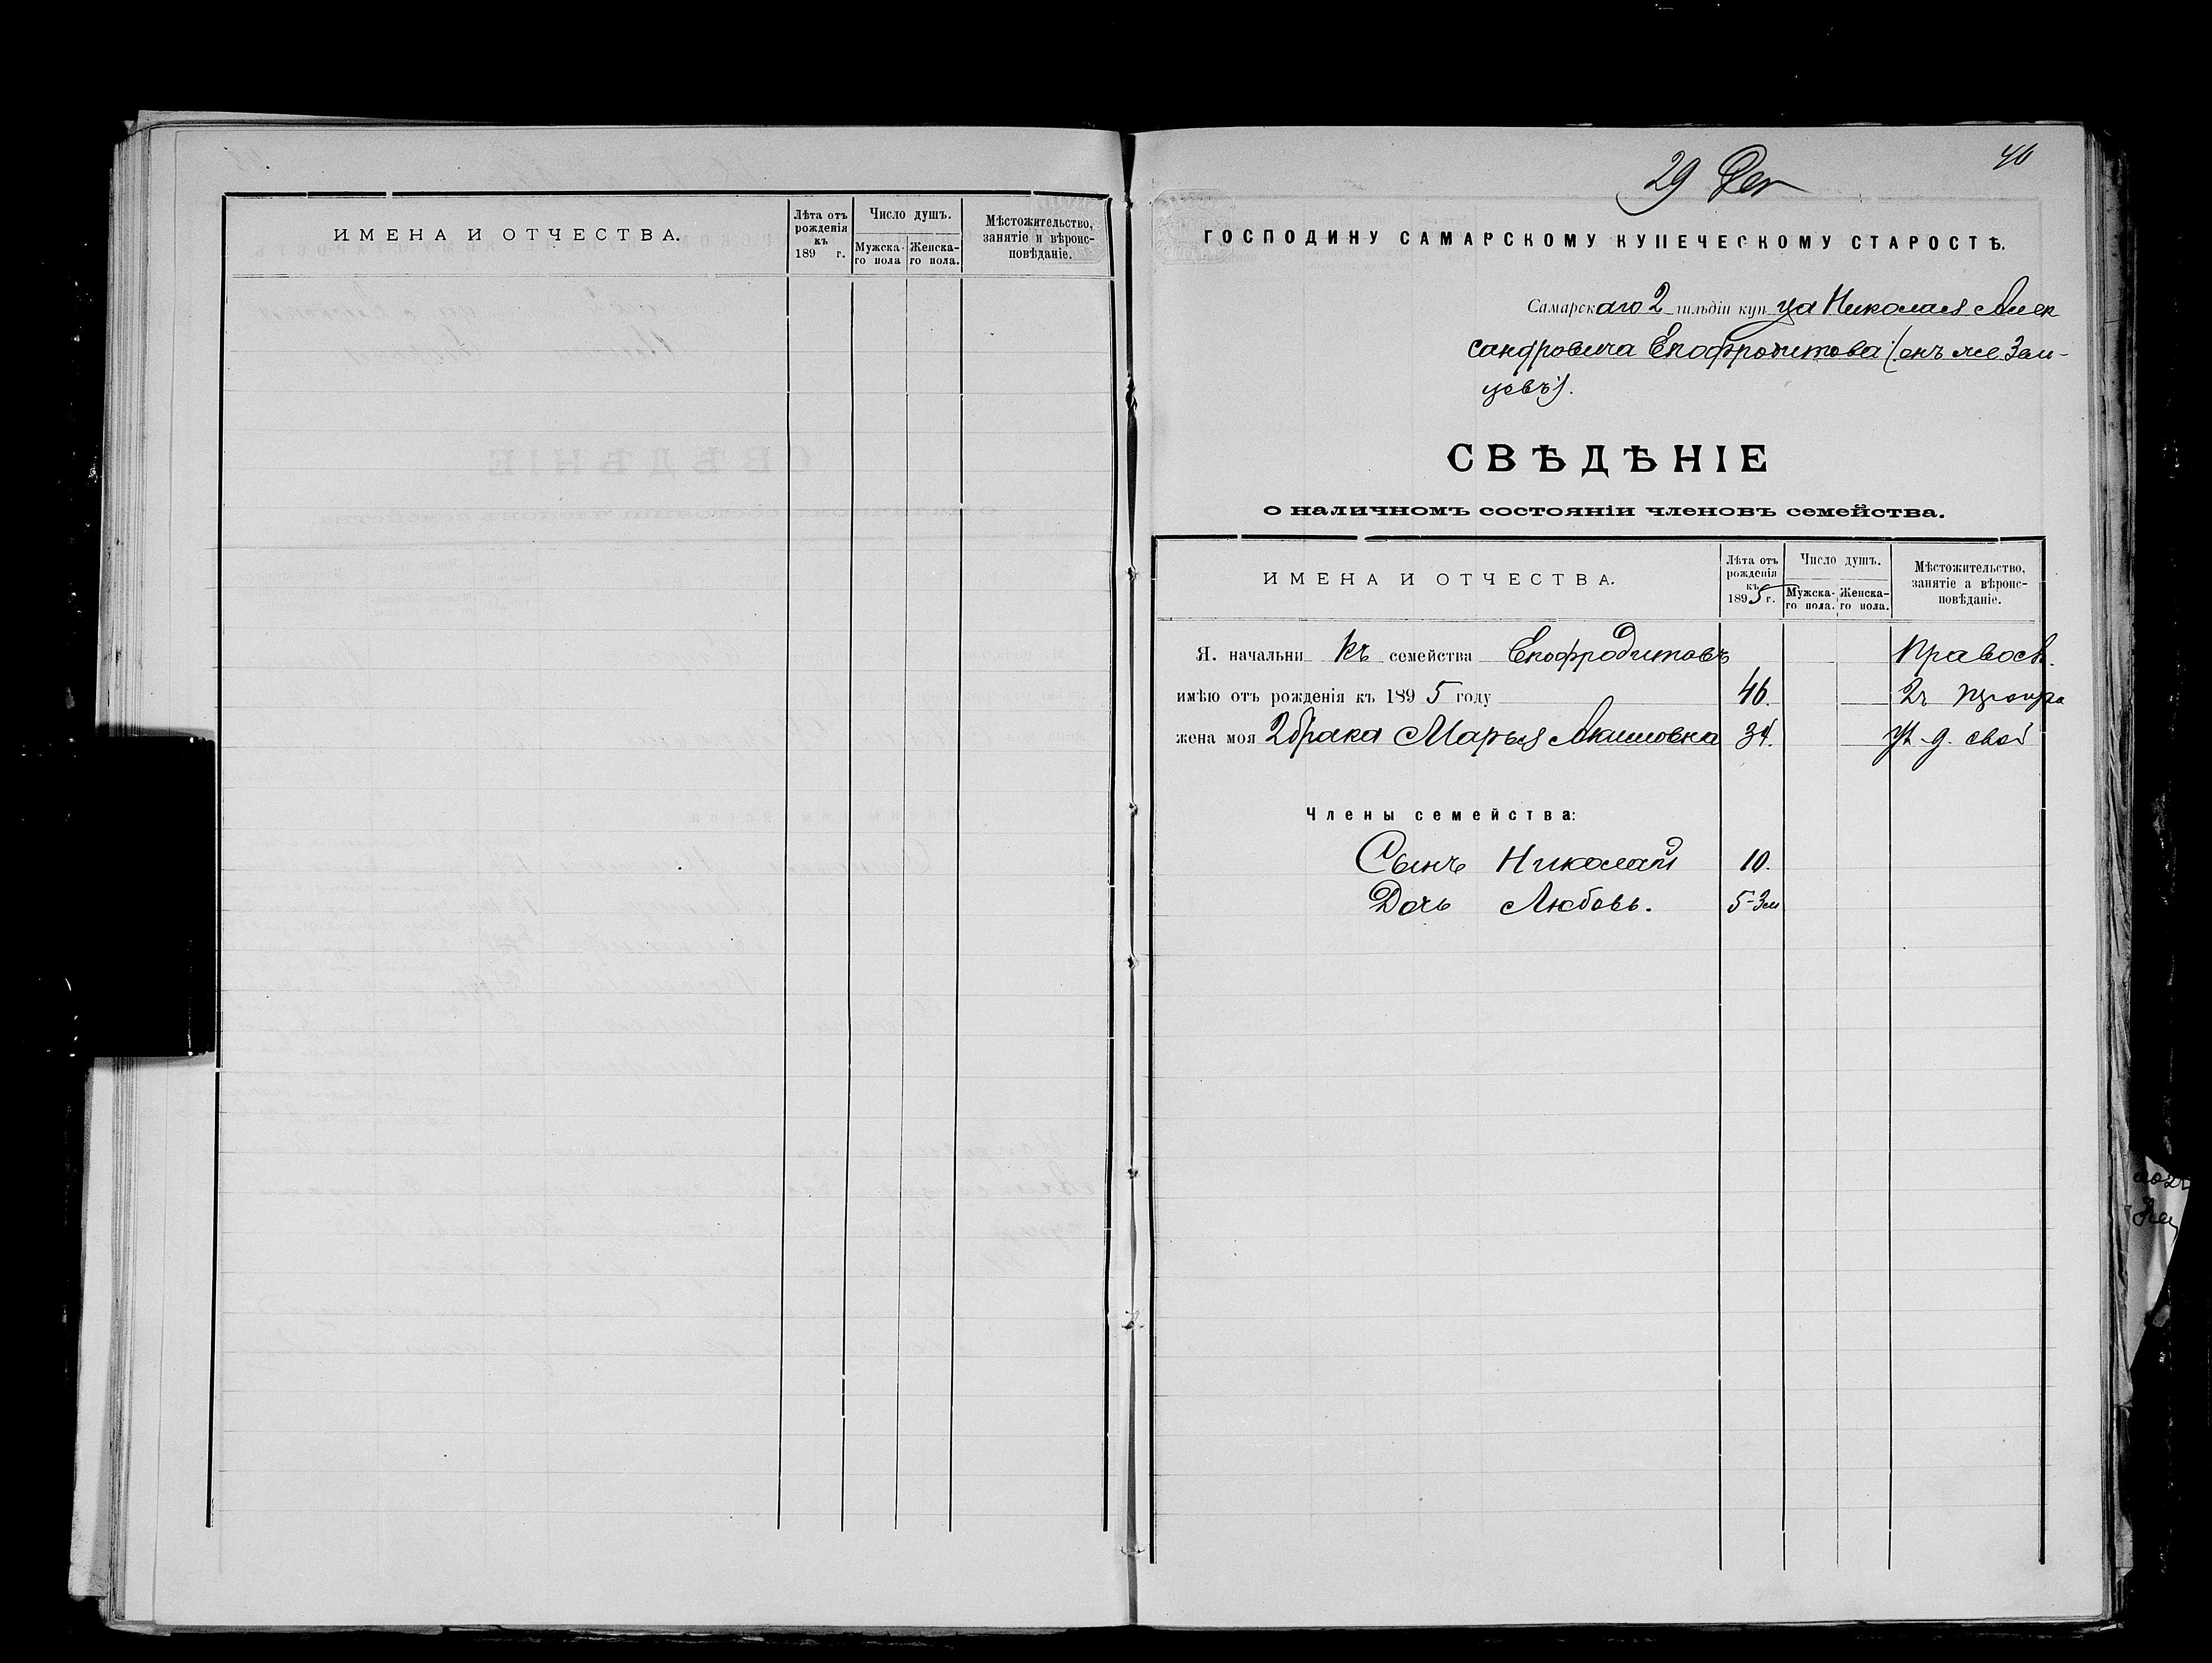 ИМЕНА И ОТЧЕСТВА.
Лѣта отъ рожденія къ 189 г.
Число душъ.
Мужска-го пола
Женска-го пола.
Мѣстожительство, занятіе и вѣроис-повѣданіе.
40
29 Дек
ГОСПОДИНУ САМАРСКОМУ КУПЕЧЕСКОМУ СТАРОСТѢ.
Самарскаго 2 гильдіи купца Николая Алек
сандровича Епафродитова (онъ же Зем-
цовъ).
СВѢДѢНІЕ
о наличномъ состояніи членовъ семейства.
ИМЕНА И ОТЧЕСТВА.
Лѣта отъ рожденія къ 1895 г.
Число душъ.
Мужска-го пола.
Женска-го пола.
Мѣстожительство, занятіе а вѣроис-повѣданіе.
Я. начальникъ семейства Епафродитовъ Правосл.
имѣю отъ рожденія къ 1895 году 46.
жена моя 2 брака Марья Акимовна 34. д. свой
Члены семейства:
Сынъ Николай 10.
Дочь Любовь. 5-3м